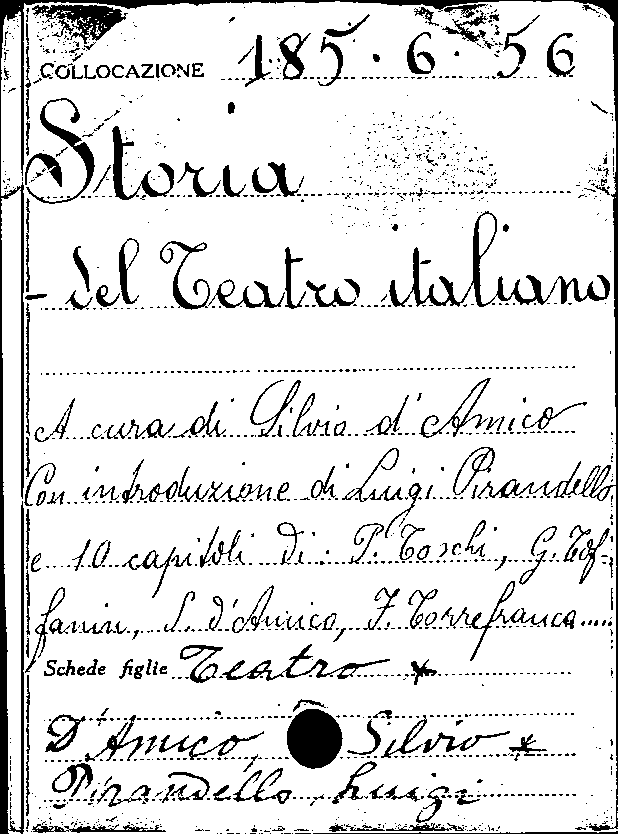 COLLOCAZIONE 185. 6. 56
Storia
- del Teatro italiano
A cura di Silvio d'Amico
Con introduzione di Luigi Pirandello
e 10 capitoli di: P. Toschi, G. Tof-
fanin, S. d'Amico, F. Torrefranca.....
Schede figlie Teatro *
D'Amico, Silvio *
Pirandello, Luigi